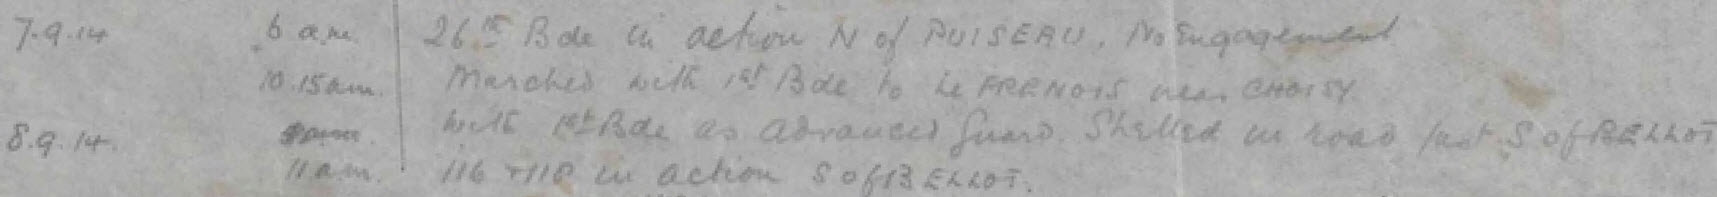 7.9.14 6 a.m. 26th Bde in action N of PUISEAU, No Engagement
10.15am. Marched with 1st Bde to Le FRENOIS near CHOISY
8.9.14. With 1st Bde as advanced guard. Shelled in road just S of BELLOT
11am. 116 + 118 in action S of BELLOT.